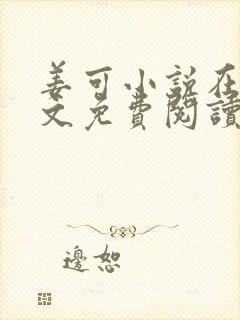 姜可小说在
文免費閱讀
邊恕